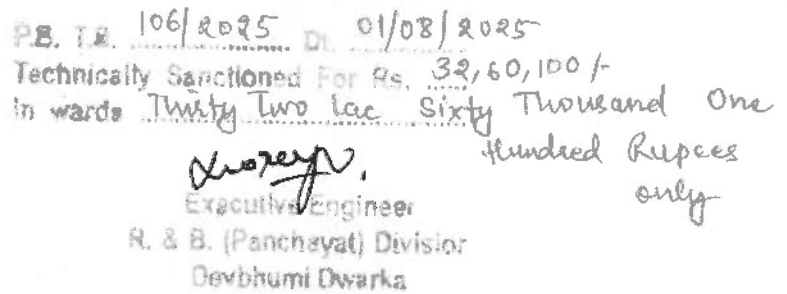 P.B. T.S. 106/2025 Dt. 01/08/2025
Technically Sanctioned For Rs. 32,60,100/-
in wards Thirty Two Lac Sixty Thousand One
Hundred Rupees
only
Executive Engineer
R. & B. (Panchayat) Division
Devbhumi Dwarka